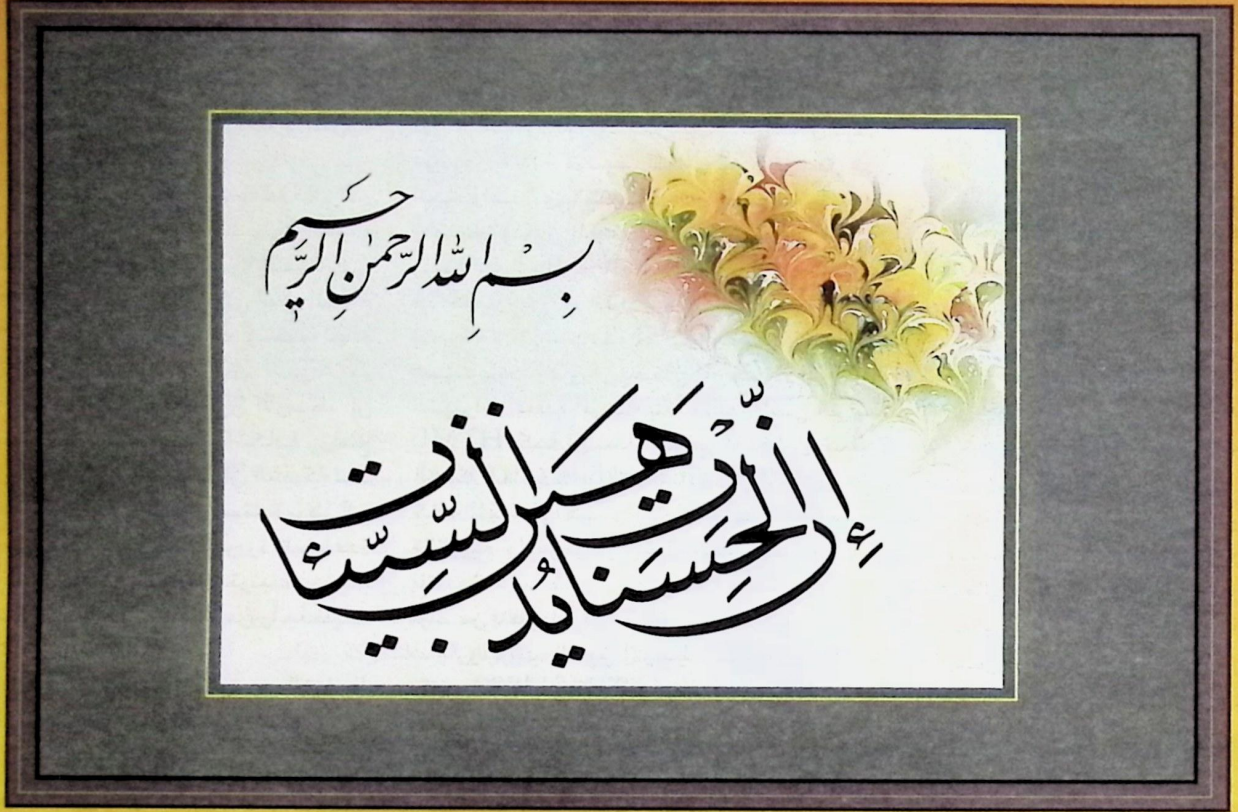 بِسْمِ اللهِ الرَّحمٰنِ الرَّحيم
إِنَّ الْحَسَنات يُذْهِبْنَ السَّيِّئات